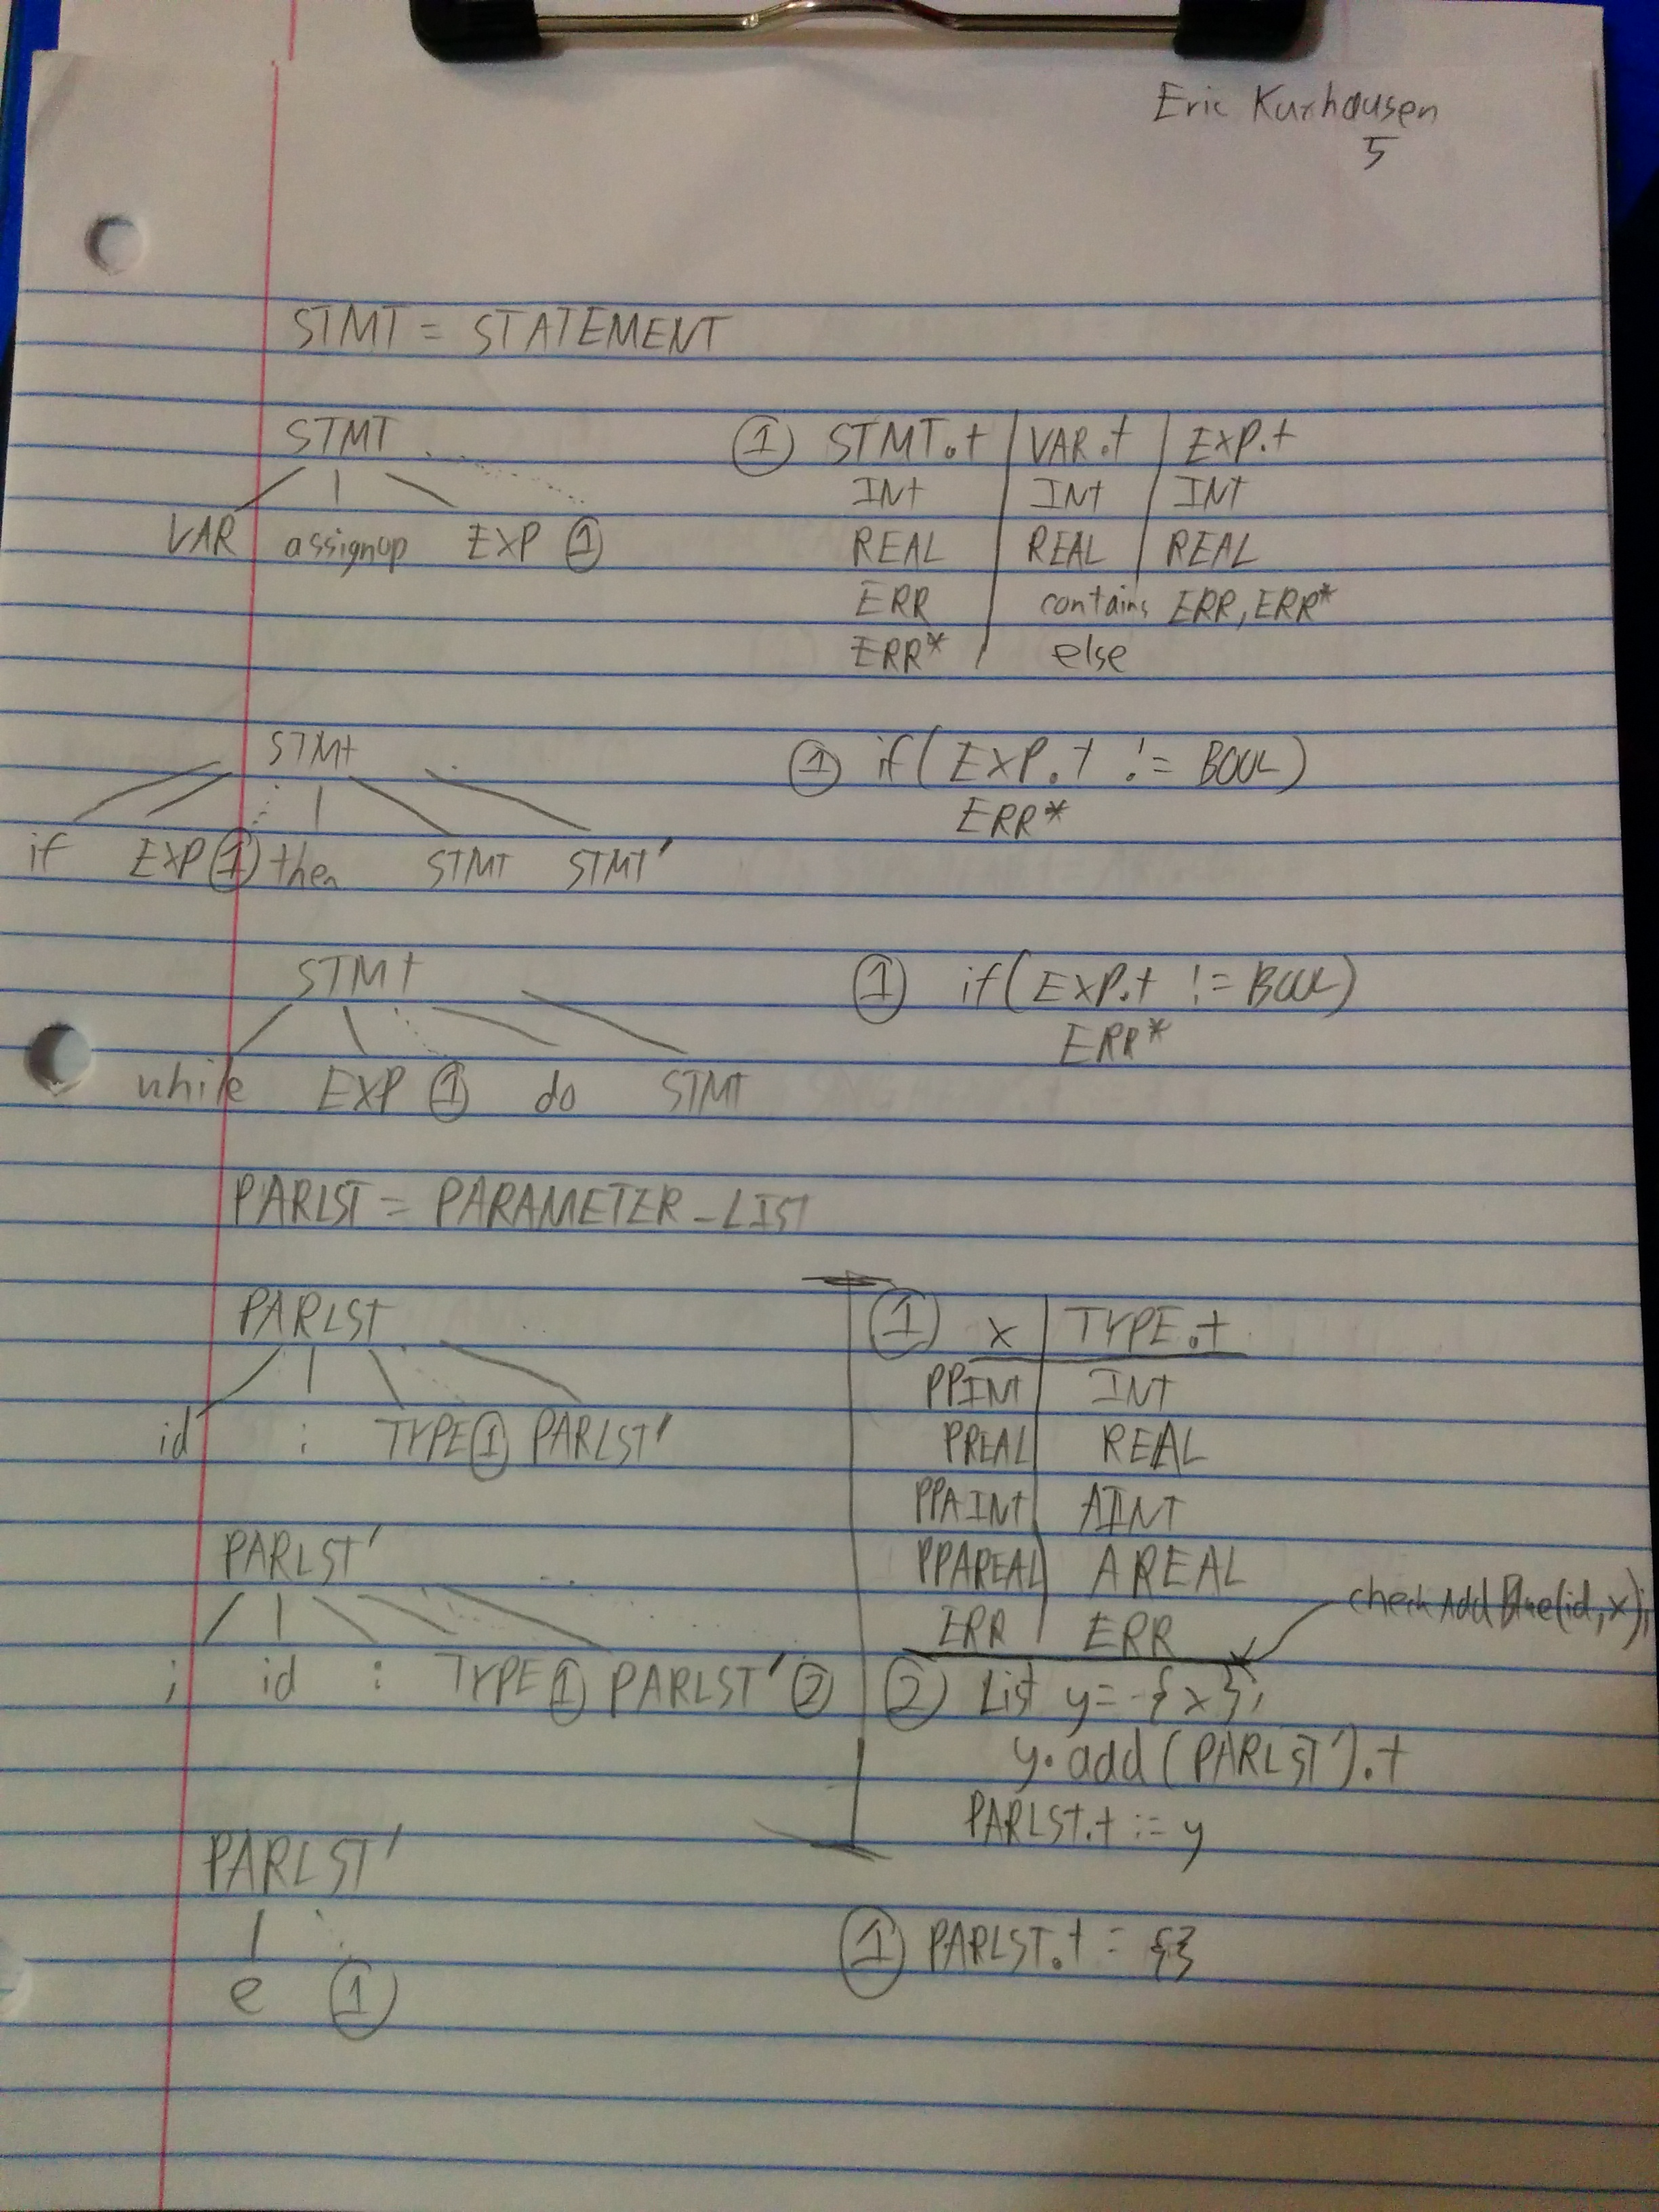 Eric Kurhausen
5
STMT = STATEMENT
STMT
VAR assignop EXP ①
① STMT.t | VAR.t | EXP.t
INT | INT | INT
REAL | REAL | REAL
ERR | contains ERR, ERR*
ERR* | else
STMT
if EXP ① then STMT STMT'
① if(EXP.t != BOOL)
ERR*
STMT
while EXP ① do STMT
① if(EXP.t != BOOL)
ERR*
PARLST = PARAMETER_LIST
PARLST
id : TYPE ① PARLST'
PARLST'
; id : TYPE ① PARLST' ②
① x | TYPE.t
PPINT | INT
PREAL | REAL
PPAINT | AINT
PPAREAL | AREAL
ERR | ERR
check Add Blue(id, x);
② List y = {x};
y.add(PARLST').t
PARLST.t := y
PARLST'
e ①
① PARLST.t = {}